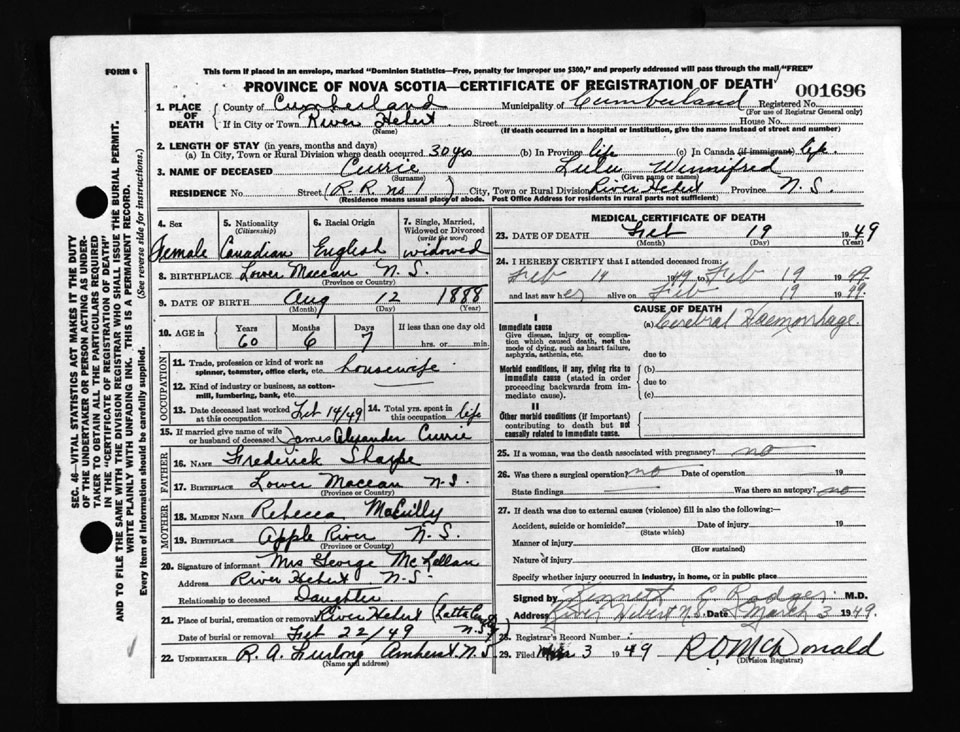 FORM 6
This form if placed in an envelope, marked "Dominion Statistics—Free, penalty for improper use $300," and properly addressed will pass through the mail "FREE"
PROVINCE OF NOVA SCOTIA—CERTIFICATE OF REGISTRATION OF DEATH 001696
1. PLACE OF DEATH { County of Cumberland Municipality of Cumberland Registered No.
(For use of Registrar General only)
If in City or Town River Hebert Street House No.
(Name) (If death occurred in a hospital or institution, give the name instead of street and number)
2. LENGTH OF STAY (in years, months and days)
(a) In City, Town or Rural Division where death occurred 30 yrs (b) In Province life (c) In Canada (if immigrant) life
3. NAME OF DECEASED Currie Lulu Winnifred
(Surname) (Given name or names)
RESIDENCE No Street (R. R. no 1) City, Town or Rural Division River Hebert Province N. S.
(Residence means usual place of abode. Post Office Address for residents in rural parts not sufficient)
4. Sex 5. Nationality (Citizenship) 6. Racial Origin 7. Single, Married, Widowed or Divorced (write the word)
Female Canadian English widowed
8. BIRTHPLACE Lower Maccan N. S.
(Province or Country)
9. DATE OF BIRTH Aug 12 1888
(Month) (Day) (Year)
10. AGE in Years Months Days If less than one day old
60 6 7 hrs. or min.
OCCUPATION
11. Trade, profession or kind of work as spinner, teamster, office clerk, etc. housewife
12. Kind of industry or business, as cotton-mill, lumbering, bank, etc.
13. Date deceased last worked at this occupation Feb 14/49 14. Total yrs. spent in this occupation life
15. If married give name of wife or husband of deceased James Alexander Currie
FATHER
16. NAME Frederick Sharpe
17. BIRTHPLACE Lower Maccan N. S.
(Province or Country)
MOTHER
18. MAIDEN NAME Rebecca
19. BIRTHPLACE Apple River N. S.
(Province or Country)
20. Signature of informant Mrs George McLellan
Address River Hebert N.S.
Relationship to deceased Daughter
21. Place of burial, cremation or removal River Hebert N.S.
Date of burial or removal Feb 22/49
22. UNDERTAKER R. A. Furlong Amherst. N. S.
(Name and address)
MEDICAL CERTIFICATE OF DEATH
23. DATE OF DEATH Feb 19 1949
(Month) (Day) (Year)
24. I HEREBY CERTIFY that I attended deceased from:
Feb 14 1949 to Feb 19 1949
and last saw her alive on Feb 19 1949.
CAUSE OF DEATH
I
Immediate cause (a) Cerebral Haemorrhage.
Give disease, injury or complication which caused death, not the mode of dying, such as heart failure, asphyxia, asthenia, etc.
due to
Morbid conditions, if any, giving rise to immediate cause (stated in order proceeding backwards from immediate cause).
(b)
due to
(c)
II
Other morbid conditions (if important) contributing to death but not causally related to immediate cause.
25. If a woman, was the death associated with pregnancy? no
26. Was there a surgical operation? no Date of operation 19
State findings Was there an autopsy? no
27. If death was due to external causes (violence) fill in also the following:—
Accident, suicide or homicide? Date of injury 19
(State which)
Manner of injury
(How sustained)
Nature of injury
Specify whether injury occurred in industry, in home, or in public place
Signed by Kenneth C. Rodger M.D.
Address River Hebert N.S. Date March 3 1949.
28. Registrar's Record Number
29. Filed Mar 3 1949 R O McDonald
(Division Registrar)
SEC. 46—VITAL STATISTICS ACT MAKES IT THE DUTY
OF THE UNDERTAKER OR PERSON ACTING AS UNDER-
TAKER TO OBTAIN ALL THE PARTICULARS REQUIRED
IN THE "CERTIFICATE OF REGISTRATION OF DEATH"
AND TO FILE THE SAME WITH THE DIVISION REGISTRAR WHO SHALL ISSUE THE BURIAL PERMIT.
WRITE PLAINLY WITH UNFADING INK. THIS IS A PERMANENT RECORD.
Every item of information should be carefully supplied. (See reverse side for instructions.)